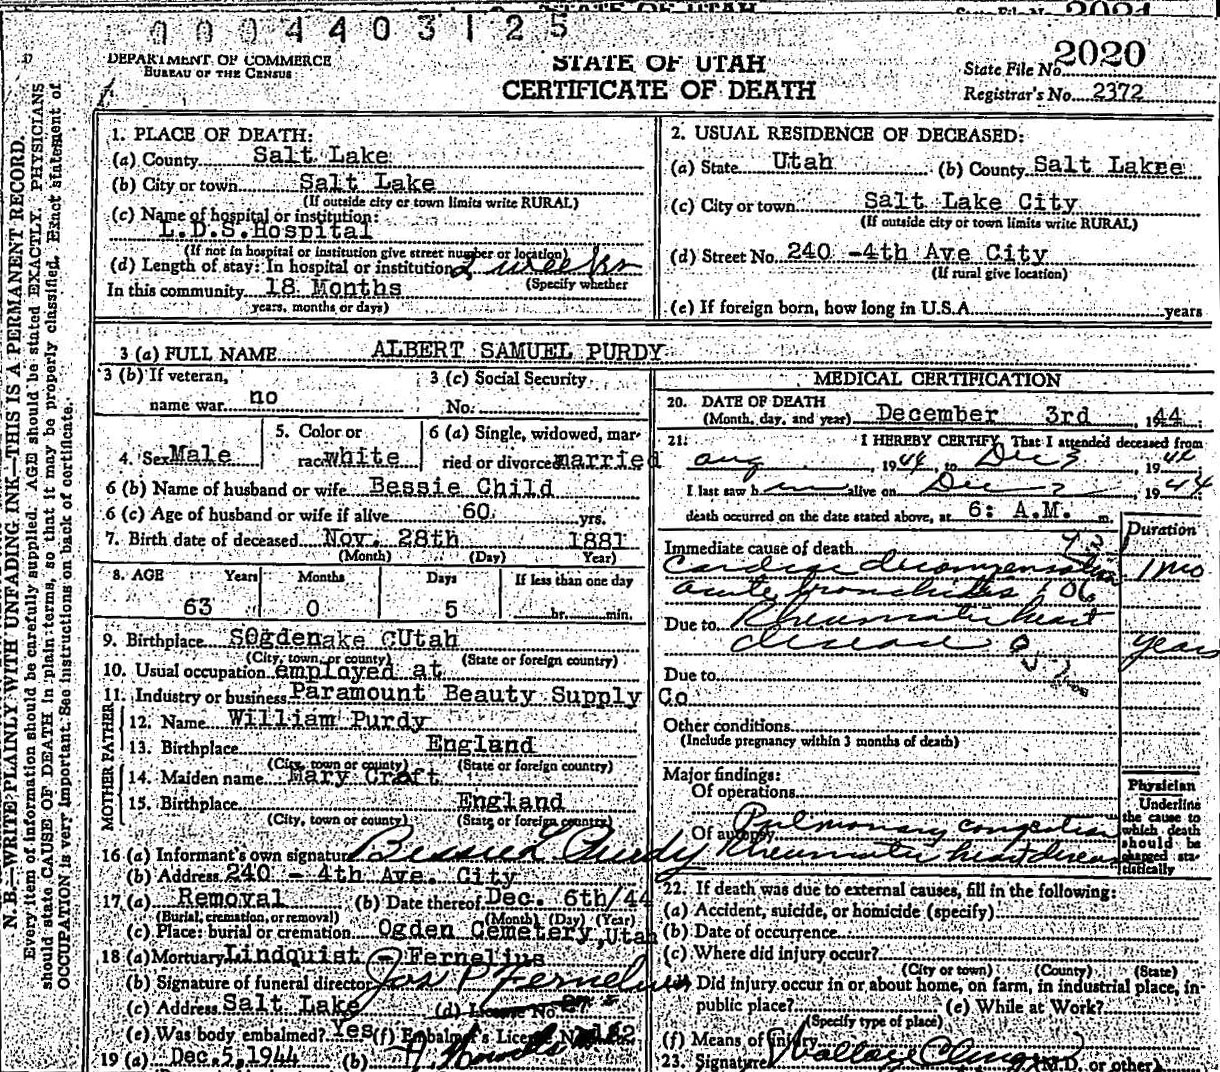 STATE OF UTAH
State File No. 2021
0004403125
DEPARTMENT OF COMMERCE
BUREAU OF THE CENSUS
STATE OF UTAH
CERTIFICATE OF DEATH
State File No. 2020
Registrar's No. 2372
N. B.—WRITE PLAINLY WITH UNFADING INK—THIS IS A PERMANENT RECORD.
Every item of information should be carefully supplied. AGE should be stated EXACTLY. PHYSICIANS
should state CAUSE OF DEATH in plain terms, so that it may be properly classified. Exact statement of
OCCUPATION is very important. See instructions on back of certificate.
1. PLACE OF DEATH:
(a) County Salt Lake
(b) City or town Salt Lake
(If outside city or town limits write RURAL)
(c) Name of hospital or institution:
L.D.S.Hospital
(If not in hospital or institution give street number or location)
(d) Length of stay: In hospital or institution 2 weeks
(Specify whether
In this community 18 Months
years, months or days)
2. USUAL RESIDENCE OF DECEASED:
(a) State Utah (b) County Salt Lakre
(c) City or town Salt Lake City
(If outside city or town limits write RURAL)
(d) Street No. 240 -4th Ave City
(If rural give location)
(e) If foreign born, how long in U.S.A. years
3 (a) FULL NAME ALBERT SAMUEL PURDY
3 (b) If veteran,
name war no
3 (c) Social Security
No.
4. Sex Male
5. Color or
race white
6 (a) Single, widowed, mar-
ried or divorced married
6 (b) Name of husband or wife Bessie Child
6 (c) Age of husband or wife if alive 60 yrs.
7. Birth date of deceased Nov. 28th 1881
(Month) (Day) Year)
8. AGE Years Months Days If less than one day
63 0 5 hr. min.
9. Birthplace Ogden Utah
(City, town, or county) (State or foreign country)
10. Usual occupation employed at
11. Industry or business Paramount Beauty Supply Co
FATHER
12. Name William Purdy
13. Birthplace England
(City, town or county) (State or foreign country)
MOTHER
14. Maiden name Mary Craft
15. Birthplace England
(City, town or county) (State or foreign country)
16 (a) Informant's own signature Bessie L Purdy
(b) Address 240 - 4th Ave. City
17 (a) Removal (b) Date thereof Dec. 6th/44
(Burial, cremation, or removal) (Month) (Day) (Year)
(c) Place: burial or cremation Ogden Cemetery, Utah
18 (a) Mortuary Lindquist - Fernelius
(b) Signature of funeral director Jos P Fernelius
(c) Address Salt Lake (d) License No.
(e) Was body embalmed? Yes (f) Embalmer's License No.
19 (a) Dec.5,1944 (b)
MEDICAL CERTIFICATION
20. DATE OF DEATH
(Month, day, and year) December 3rd, 1944
21. I HEREBY CERTIFY, That I attended deceased from
Aug, 1944, to Dec 3, 1944
I last saw him alive on Dec 2, 1944
death occurred on the date stated above, at 6: A.M. m.
Duration
Immediate cause of death
Cardiac decompensation 1 mo
acute bronchitis
Due to Rheumatic heart
disease years
Due to
Other conditions
(Include pregnancy within 3 months of death)
Major findings:
Of operations
Of autopsy Pulmonary congestion
Rheumatic heart disease
Physician
Underline
the cause to
which death
should be
charged sta-
tistically
22. If death was due to external causes, fill in the following:
(a) Accident, suicide, or homicide (specify)
(b) Date of occurrence
(c) Where did injury occur?
(City or town) (County) (State)
(d) Did injury occur in or about home, on farm, in industrial place, in
public place? (e) While at Work?
(Specify type of place)
(f) Means of injury
23. Signature (M.D. or other)